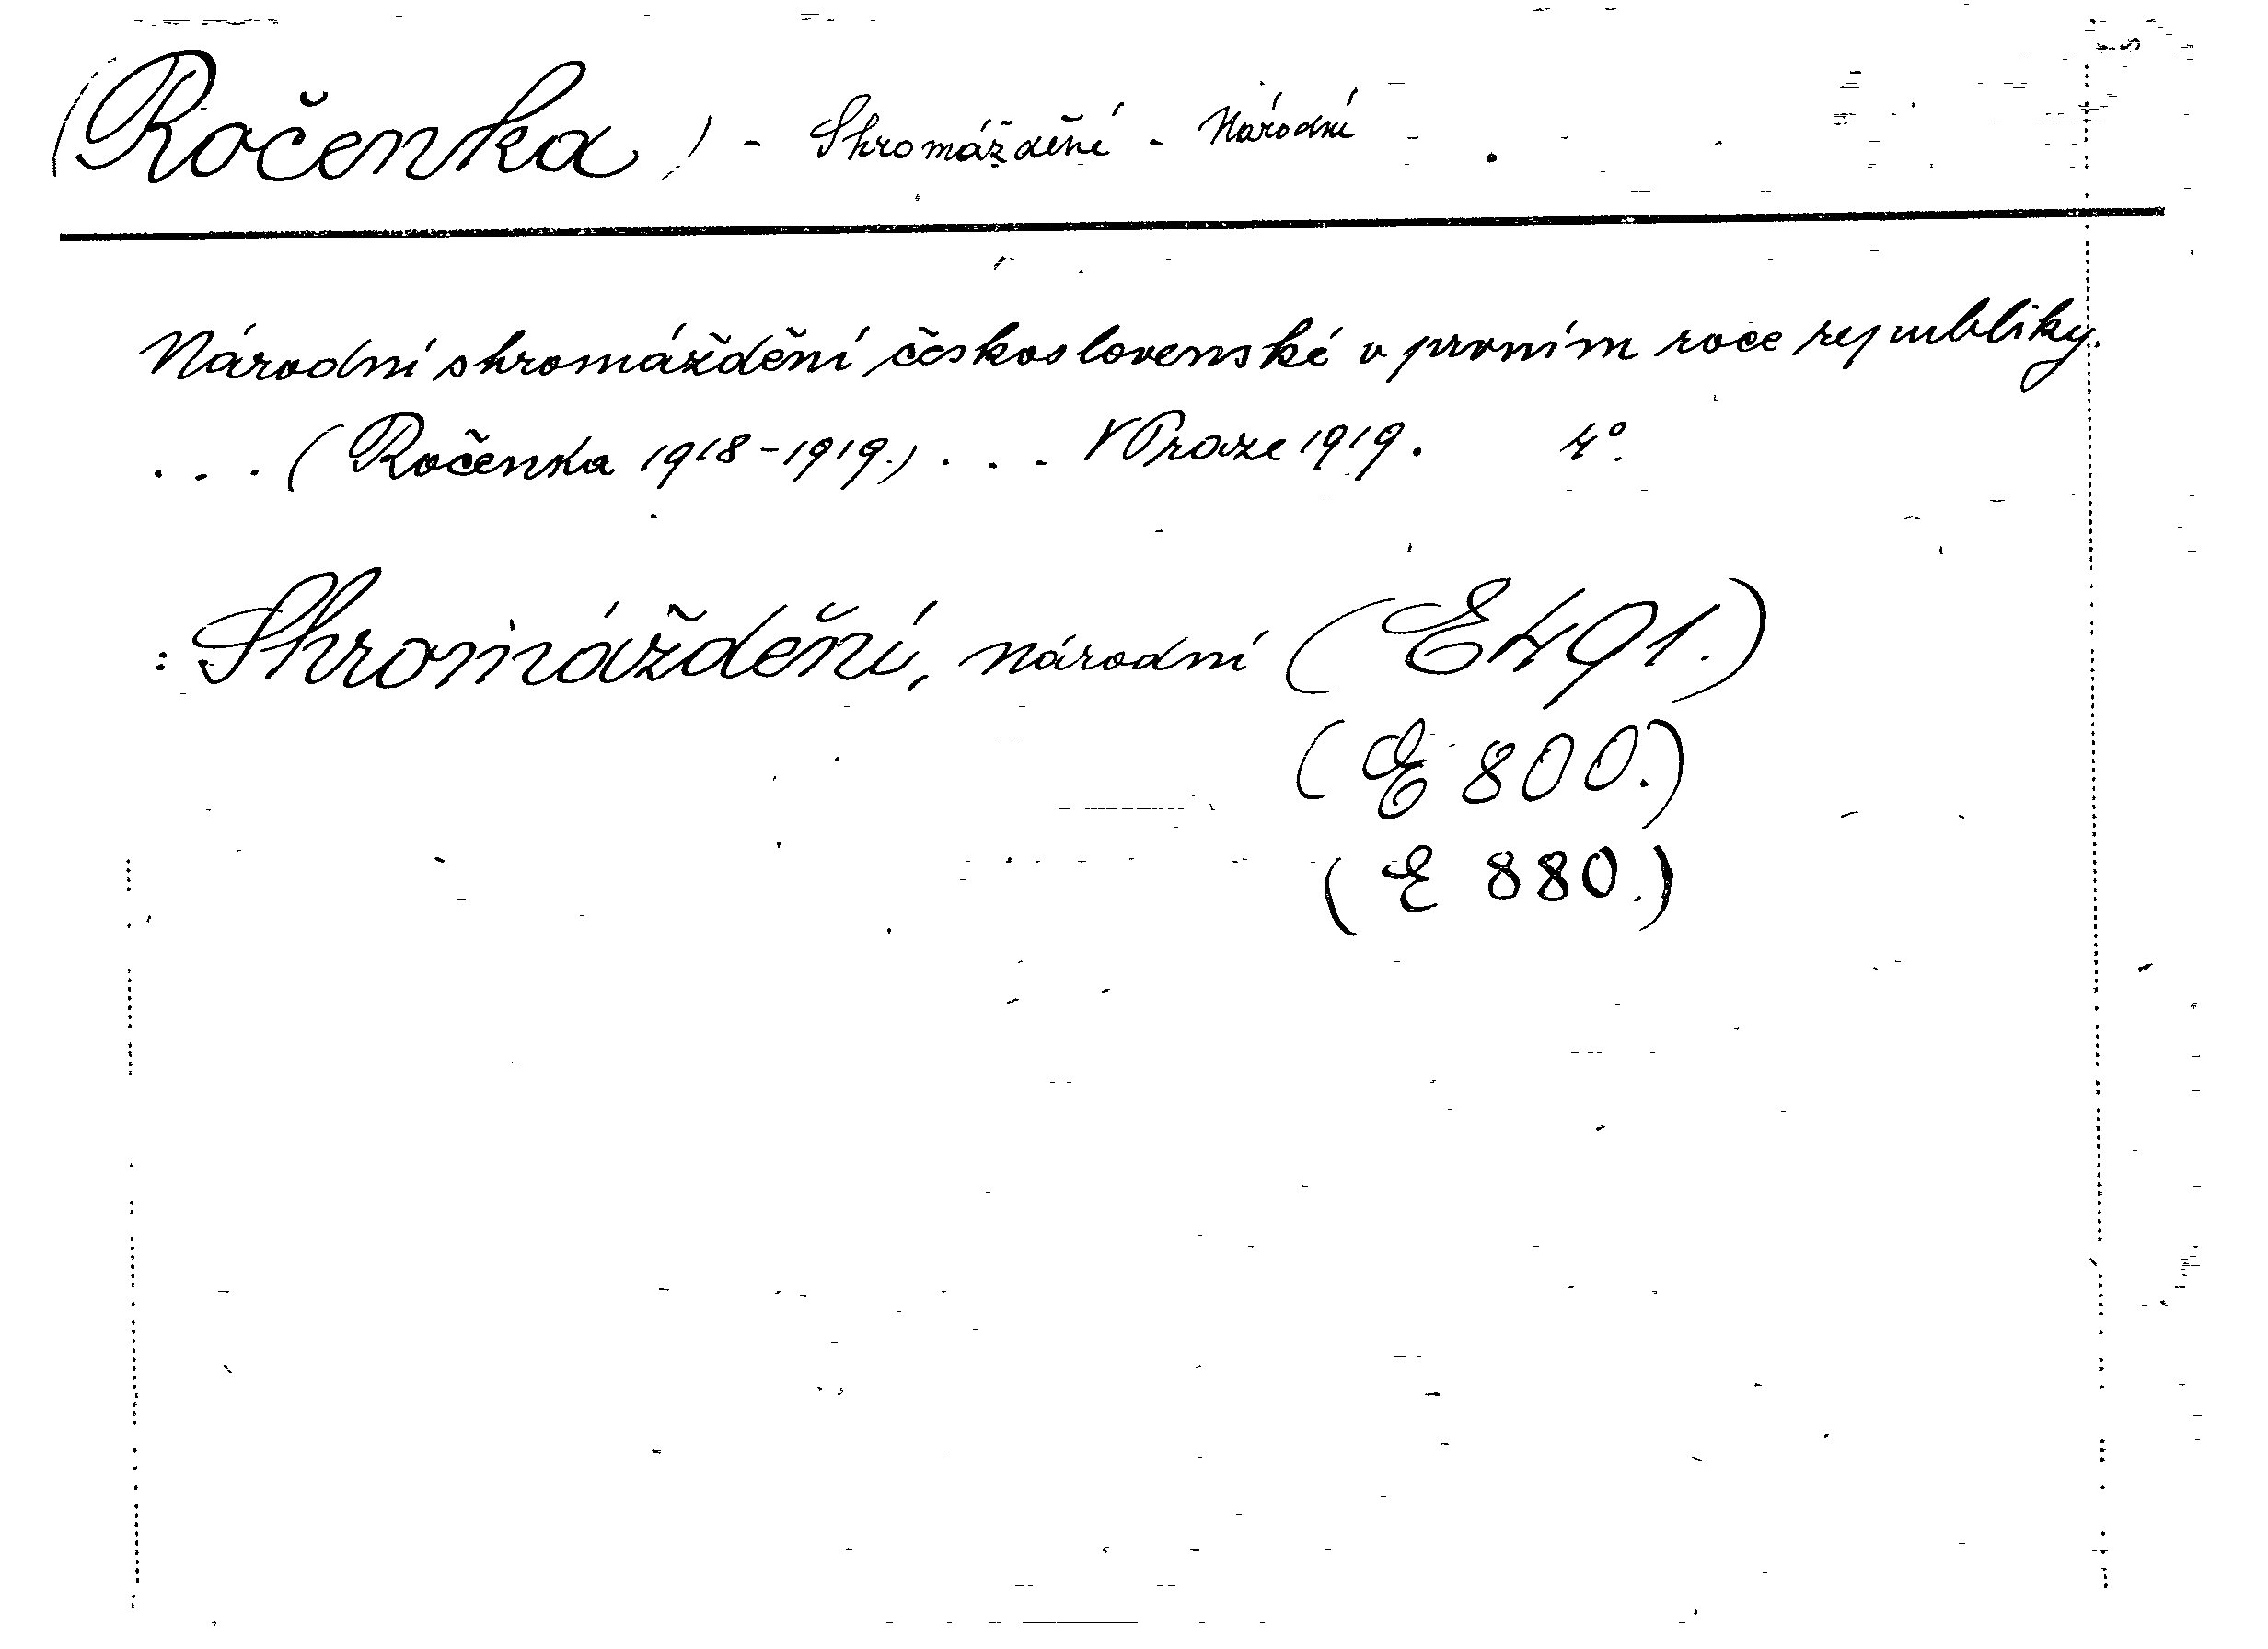 (Ročenka) - Shromáždění - Národní
Národní shromáždění československé v prvním roce republiky.
. . . (Ročenka 1918-1919.) . . . V Praze 1919. 4°.
: Shromáždění, národní (E 491.)
(E 800.)
(E 880.)